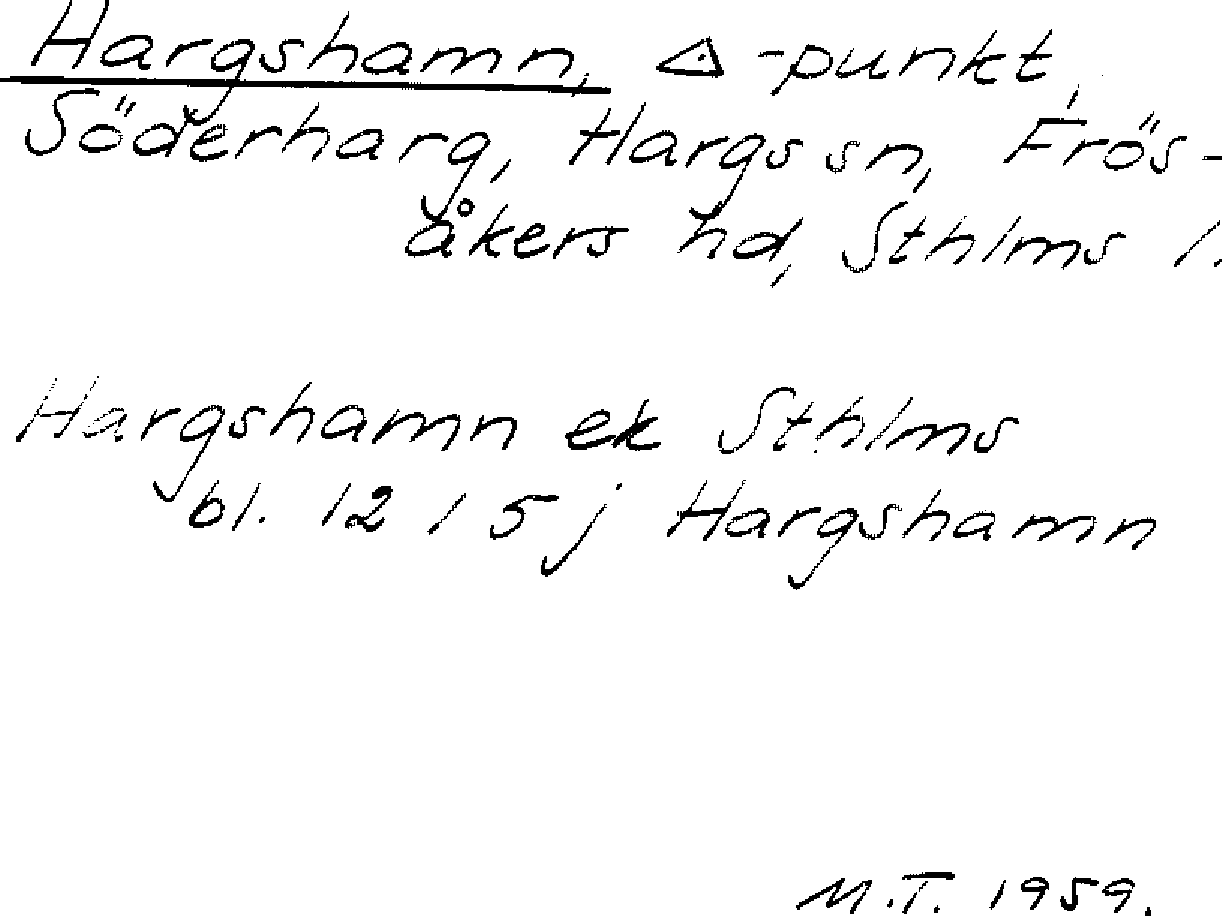 Hargshamn, △-punkt,
Söderharg, Hargs sn, Frös-
åkers hd, Sthlms l.
Hargshamn ek Sthlms
bl. 12 I 5 j Hargshamn
M.T. 1959.